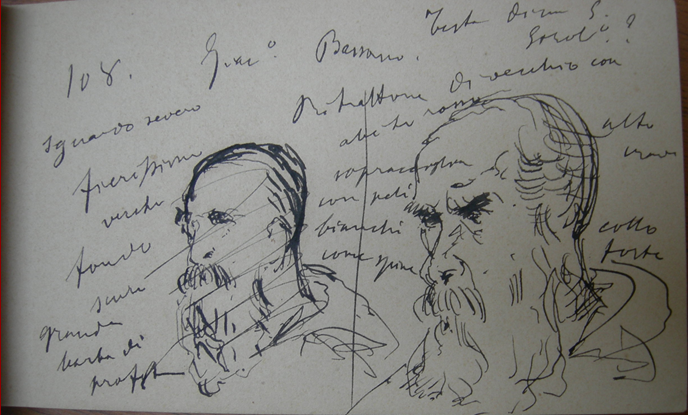 108. Giac° Bassano. Testa di un S.
Girol°?
sguardo severo
fondo
scuro
grande
barba di
profeta
Ritrattone di vecchio con
abito rosso
sopracciglia
con peli
bianchi
come spine
alto
collo
forte